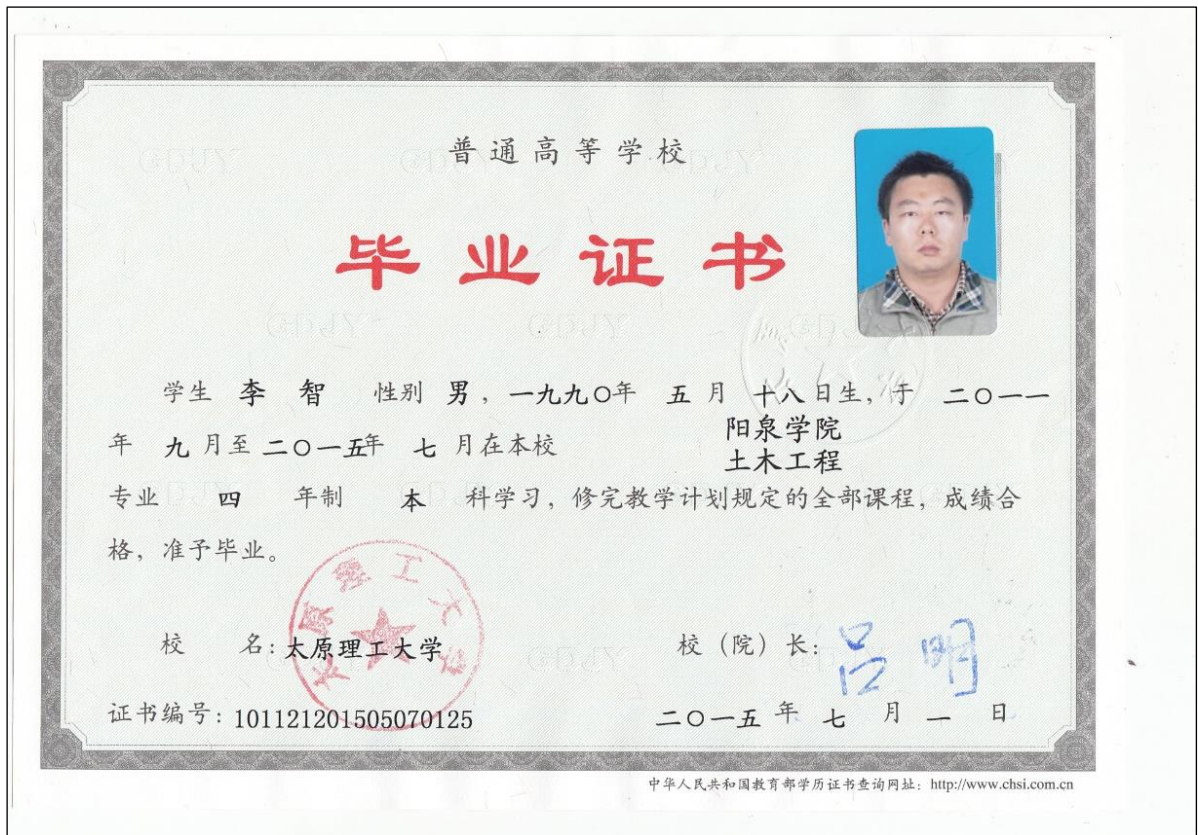 普通高等学校
毕业证书
学生 李 智 性别 男，一九九〇年 五 月 十八日生，于 二〇一一
年 九 月至 二〇一五年 七 月在本校 阳泉学院
土木工程
专业 四 年制 本 科学习，修完教学计划规定的全部课程，成绩合
格，准予毕业。
太原理工大学
校 名：太原理工大学 校（院）长：吕明
证书编号：101121201505070125 二〇一五 年 七 月 一 日
中华人民共和国教育部学历证书查询网址：http://www.chsi.com.cn